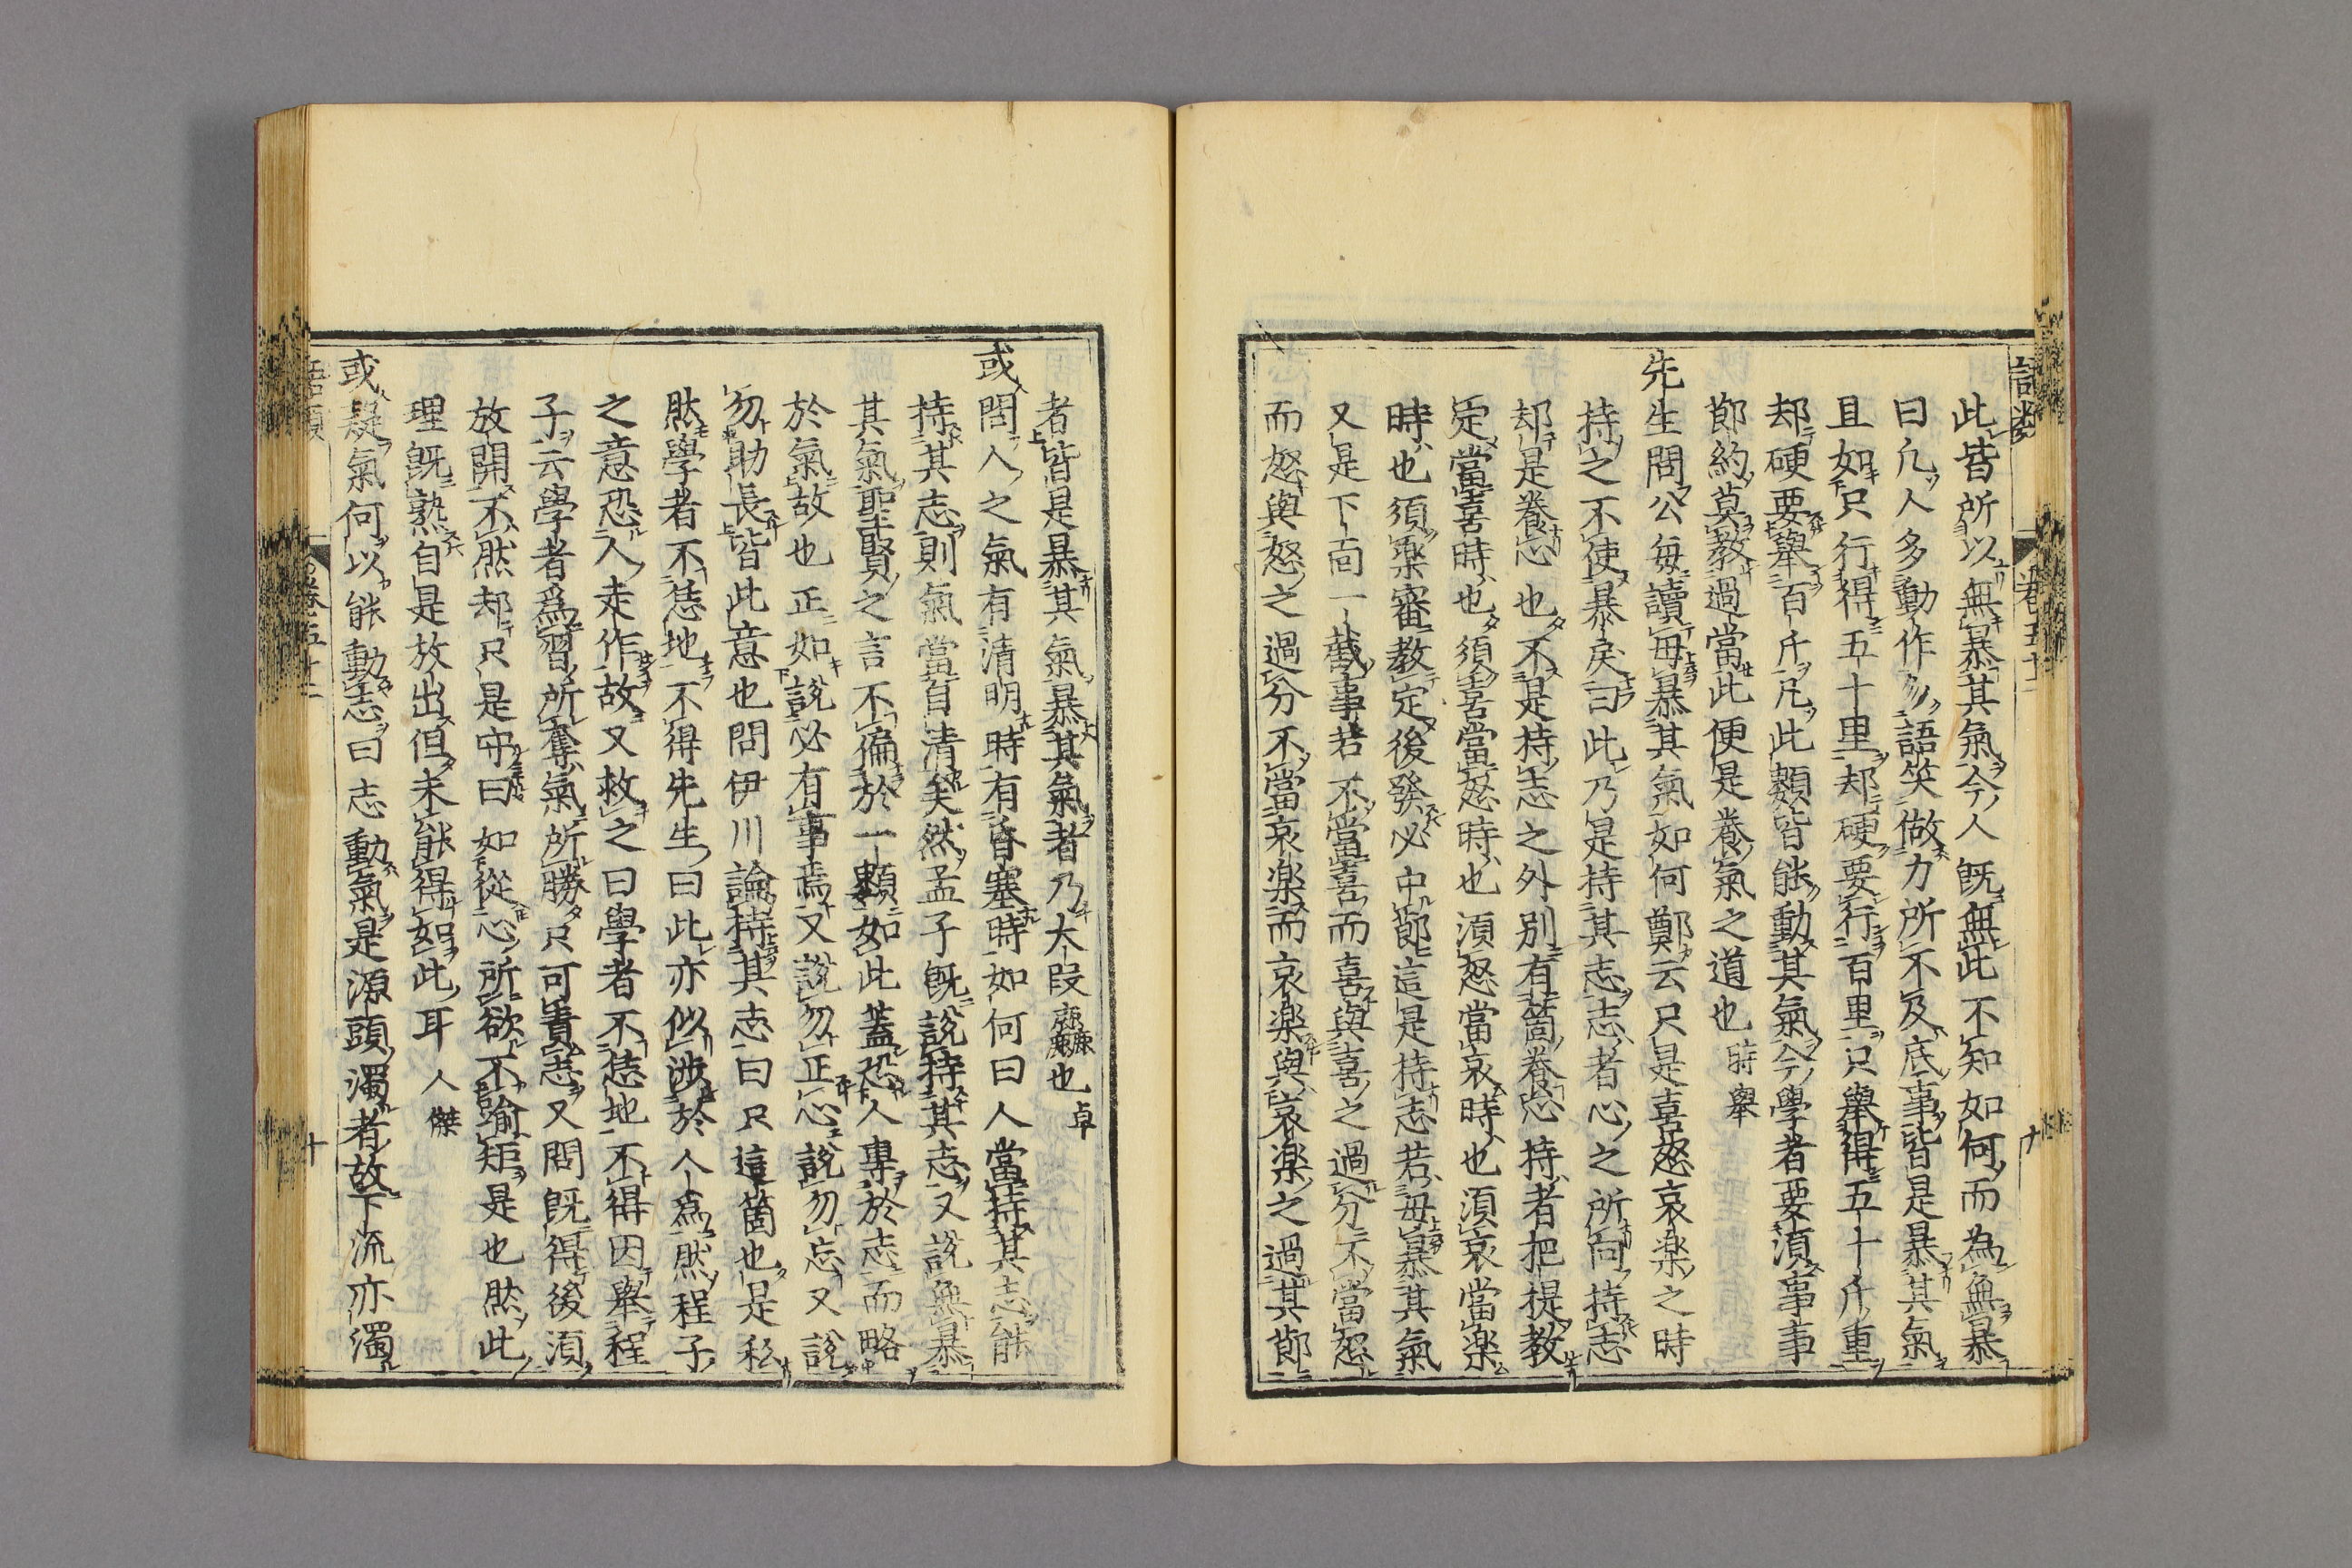 語類　卷五十二　十
此皆所以無暴其氣今人既無此不知如何而為無暴
曰凢人多動作多語笑做力所不及底事皆是暴其氣
且如只行得五十里却硬要行百里只舉得五十斤重
却硬要舉百斤凡此類皆能動其氣今學者要湏事事
節約莫教過當此便是養氣之道也 時舉
先生問公每讀毋暴其氣如何鄭云只是喜怒哀楽之時
持之不使暴戾曰此乃是持其志志者心之所向持志
却是養心也不是持志之外別有箇養心持者把提教
定當喜時也須喜當怒時也湏怒當哀時也湏哀當楽
時也須楽審教定後發必中節這是持志若毋暴其氣
又是下面一截事若不當喜而喜與喜之過分不當怒
而怒與怒之過分不當哀楽而哀楽與哀楽之過其節
者皆是暴其氣暴其氣者乃大段麄也 卓
或問人之氣有清明時有昏塞時如何曰人當持其志能
持其志則氣當自清矣然孟子既說持其志又說無暴
其氣聖賢之言不偏於一類如此蓋恐人專於志而略
於氣故也正如說必有事焉又說勿正心說勿忘又說
勿助長皆此意也問伊川論持其志曰只這箇也是私
然學者不恁地不得先生曰此亦似涉於人為然程子
之意恐人走作故又救之曰學者不恁地不得因舉程
子云學者為習所奪氣所勝只可責志又問既得後湏
放開不然却只是守曰如從心所欲不踰矩是也然此
理既熟自是放出但未能得如此耳 人傑
或疑氣何以能動志曰志動氣是源頭濁者故下流亦濁
語類　卷五十二　十